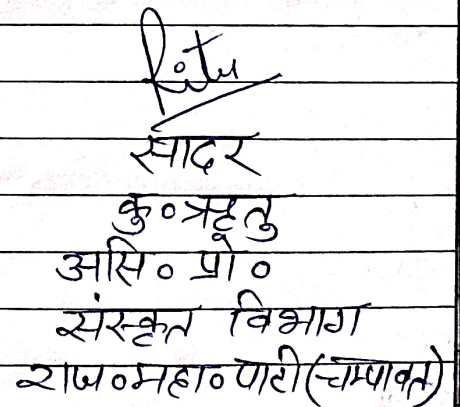 Ritu
सादर
कु० ऋतु
असि० प्रो०
संस्कृत विभाग
राज०महा० पाटी (चम्पावत)